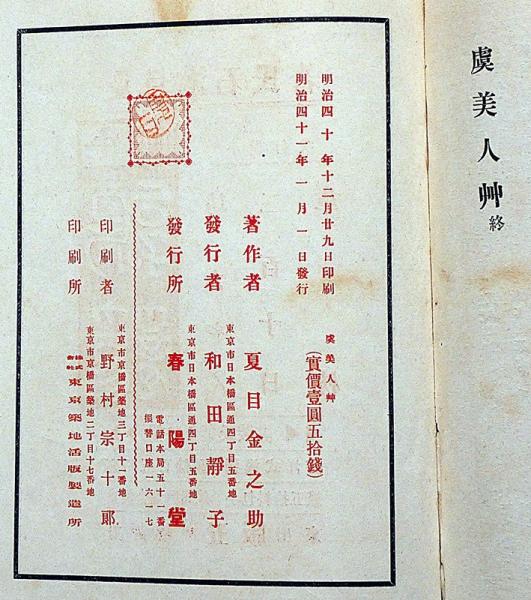 虞美人艸 終
明治四十年十二月廿九日印刷
明治四十一年一月一日發行
虞美人艸
(實價壹圓五拾錢)
著作者 夏目金之助
東京市日本橋區通四丁目五番地
發行者 和田靜子
東京市日本橋區通四丁目五番地
發行所 春陽堂
電話本局五十一番
振替口座一六一七
東京市京橋區築地三丁目十一番地
印刷者 野村宗十郎
東京市京橋區築地二丁目十七番地
印刷所 株式會社 東京築地活版製造所